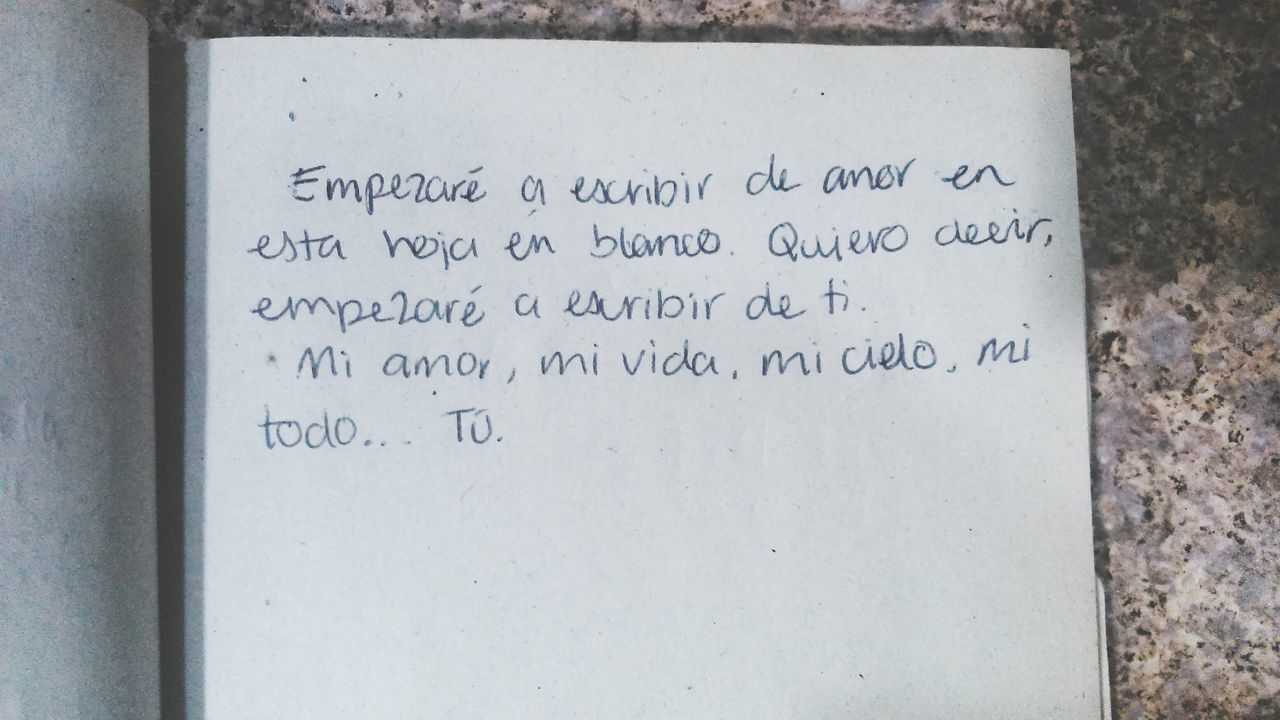 Empezaré a escribir de amor en
esta hoja en blanco. Quiero decir,
empezaré a escribir de ti.
Mi amor, mi vida, mi cielo, mi
todo... Tú.